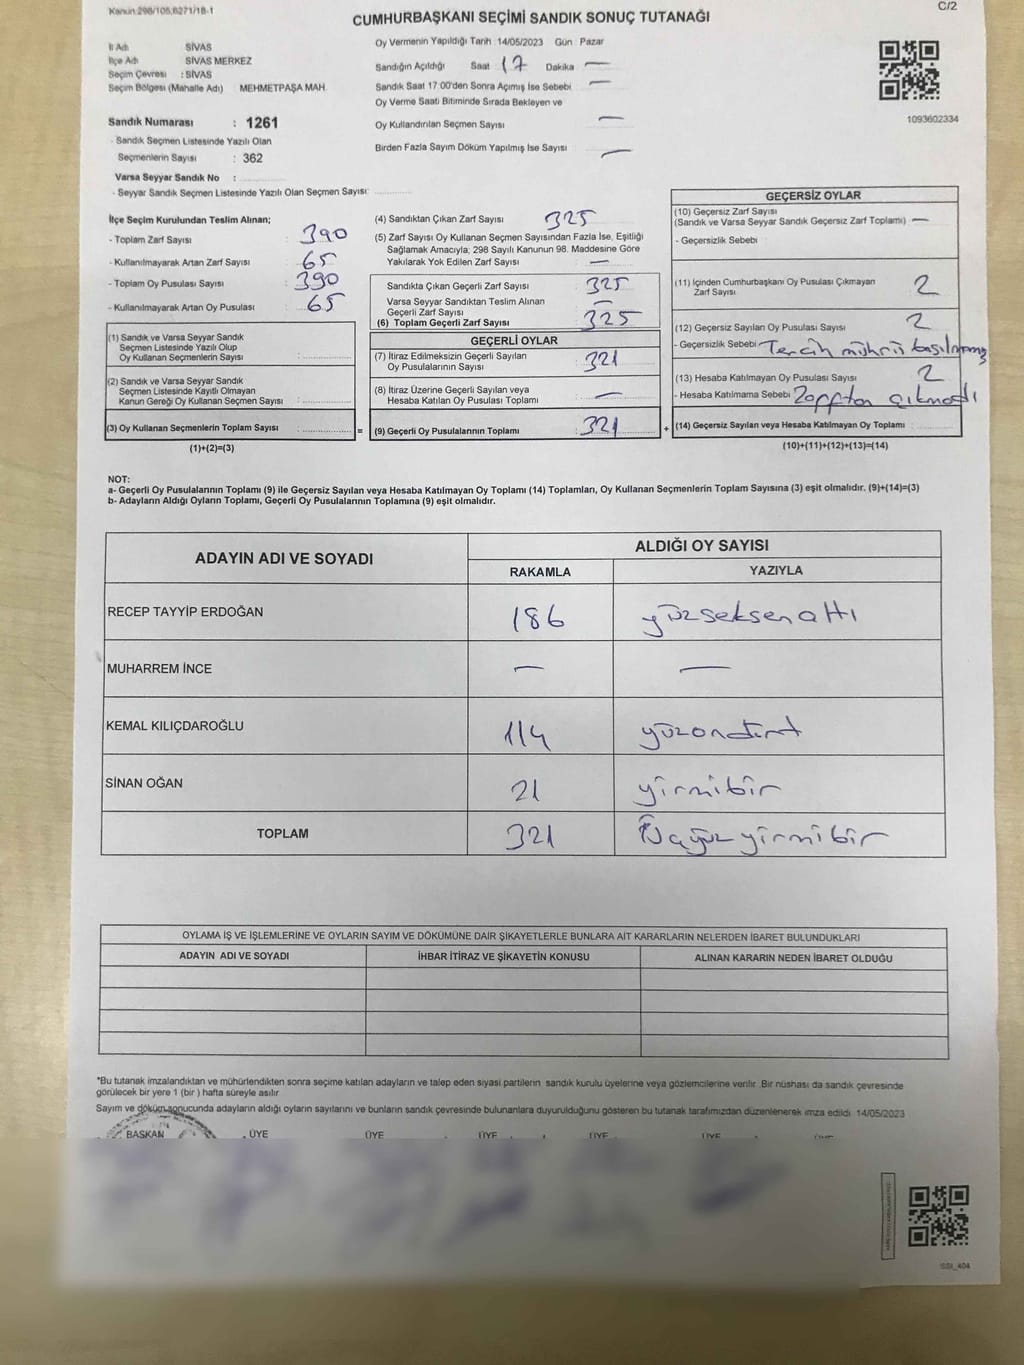 Kanun 298/105,6271/18-1
C/2
CUMHURBAŞKANI SEÇİMİ SANDIK SONUÇ TUTANAĞI
İl Adı SİVAS
İlçe Adı SİVAS MERKEZ
Seçim Çevresi : SİVAS
Seçim Bölgesi (Mahalle Adı) MEHMETPAŞA MAH.
Sandık Numarası : 1261
- Sandık Seçmen Listesinde Yazılı Olan
Seçmenlerin Sayısı : 362
Varsa Seyyar Sandık No :
- Seyyar Sandık Seçmen Listesinde Yazılı Olan Seçmen Sayısı:
Oy Vermenin Yapıldığı Tarih 14/05/2023 Gün : Pazar
Sandığın Açıldığı Saat 17 Dakika —
Sandık Saat 17:00'den Sonra Açımış İse Sebebi —
Oy Verme Saati Bitiminde Sırada Bekleyen ve
Oy Kullandırılan Seçmen Sayısı —
Birden Fazla Sayım Döküm Yapılmış İse Sayısı —
1093602334
İlçe Seçim Kurulundan Teslim Alınan;
- Toplam Zarf Sayısı : 390
- Kullanılmayarak Artan Zarf Sayısı : 65
- Toplam Oy Pusulası Sayısı : 390
- Kullanılmayarak Artan Oy Pusulası : 65
(1) Sandık ve Varsa Seyyar Sandık
Seçmen Listesinde Yazılı Olup
Oy Kullanan Seçmenlerin Sayısı :
(2) Sandık ve Varsa Seyyar Sandık
Seçmen Listesinde Kayıtlı Olmayan
Kanun Gereği Oy Kullanan Seçmen Sayısı :
(3) Oy Kullanan Seçmenlerin Toplam Sayısı :
(1)+(2)=(3)
(4) Sandıktan Çıkan Zarf Sayısı 325
(5) Zarf Sayısı Oy Kullanan Seçmen Sayısından Fazla İse, Eşitliği
Sağlamak Amacıyla; 298 Sayılı Kanunun 98. Maddesine Göre
Yakılarak Yok Edilen Zarf Sayısı —
Sandıkta Çıkan Geçerli Zarf Sayısı : 325
Varsa Seyyar Sandıktan Teslim Alınan
Geçerli Zarf Sayısı : —
(6) Toplam Geçerli Zarf Sayısı : 325
GEÇERLİ OYLAR
(7) İtiraz Edilmeksizin Geçerli Sayılan
Oy Pusulalarının Sayısı : 321
(8) İtiraz Üzerine Geçerli Sayılan veya
Hesaba Katılan Oy Pusulası Toplamı : —
= (9) Geçerli Oy Pusulalarının Toplamı : 321 +
GEÇERSİZ OYLAR
(10) Geçersiz Zarf Sayısı
(Sandık ve Varsa Seyyar Sandık Geçersiz Zarf Toplamı) —
- Geçersizlik Sebebi :
(11) İçinden Cumhurbaşkanı Oy Pusulası Çıkmayan
Zarf Sayısı 2
(12) Geçersiz Sayılan Oy Pusulası Sayısı 2
- Geçersizlik Sebebi Tercih mührü basılmamış
(13) Hesaba Katılmayan Oy Pusulası Sayısı 2
- Hesaba Katılmama Sebebi Zarftan çıkmadı
(14) Geçersiz Sayılan veya Hesaba Katılmayan Oy Toplamı :
(10)+(11)+(12)+(13)=(14)
NOT:
a- Geçerli Oy Pusulalarının Toplamı (9) ile Geçersiz Sayılan veya Hesaba Katılmayan Oy Toplamı (14) Toplamları, Oy Kullanan Seçmenlerin Toplam Sayısına (3) eşit olmalıdır. (9)+(14)=(3)
b- Adayların Aldığı Oyların Toplamı, Geçerli Oy Pusulalarının Toplamına (9) eşit olmalıdır.
ADAYIN ADI VE SOYADI ALDIĞI OY SAYISI
RAKAMLA YAZIYLA
RECEP TAYYİP ERDOĞAN 186 yüzseksenaltı
MUHARREM İNCE — —
KEMAL KILIÇDAROĞLU 114 yüzondört
SİNAN OĞAN 21 yirmibir
TOPLAM 321 Üçyüzyirmibir
OYLAMA İŞ VE İŞLEMLERİNE VE OYLARIN SAYIM VE DÖKÜMÜNE DAİR ŞİKAYETLERLE BUNLARA AİT KARARLARIN NELERDEN İBARET BULUNDUKLARI
ADAYIN ADI VE SOYADI İHBAR İTİRAZ VE ŞİKAYETİN KONUSU ALINAN KARARIN NEDEN İBARET OLDUĞU
*Bu tutanak imzalandıktan ve mühürlendikten sonra seçime katılan adayların ve talep eden siyasi partilerin sandık kurulu üyelerine veya gözlemcilerine verilir. Bir nüshası da sandık çevresinde
görülecek bir yere 1 (bir ) hafta süreyle asılır
Sayım ve döküm sonucunda adayların aldığı oyların sayılarını ve bunların sandık çevresinde bulunanlara duyurulduğunu gösteren bu tutanak tarafımızdan düzenlenerek imza edildi. 14/05/2023
BAŞKAN ÜYE ÜYE ÜYE ÜYE ÜYE
SSI_404